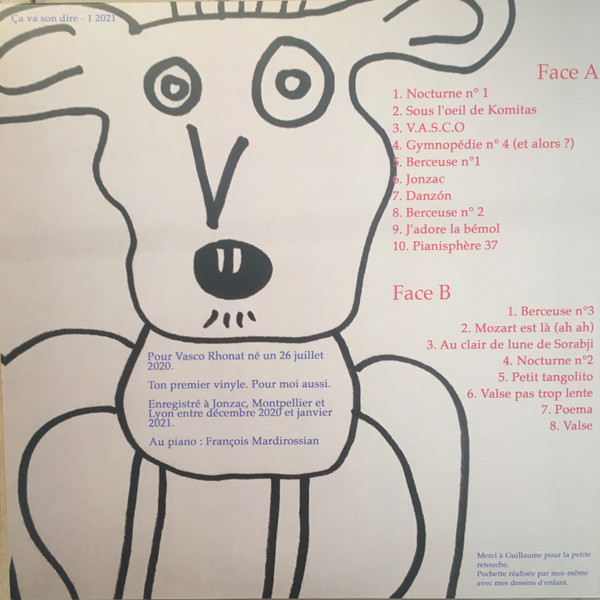 Ça va son dire - 1 2021
Face A
1. Nocturne n° 1
2. Sous l'oeil de Komitas
3. V.A.S.C.O
4. Gymnopédie n° 4 (et alors ?)
5. Berceuse n°1
6. Jonzac
7. Danzón
8. Berceuse n° 2
9. J'adore la bémol
10. Pianisphère 37
Face B
1. Berceuse n°3
2. Mozart est là (ah ah)
3. Au clair de lune de Sorabji
4. Nocturne n°2
5. Petit tangolito
6. Valse pas trop lente
7. Poema
8. Valse
Pour Vasco Rhonat né un 26 juillet
2020.
Ton premier vinyle. Pour moi aussi.
Enregistré à Jonzac, Montpellier et
Lyon entre décembre 2020 et janvier
2021.
Au piano : François Mardirossian
Merci à Guillaume pour la petite
retouche.
Pochette réalisée par moi-même
avec mes dessins d'enfant.